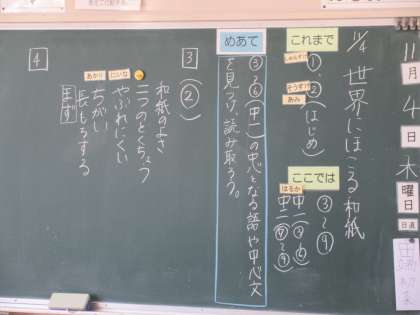 11月4日
木曜日
日直
11/4 世界にほこる和紙
これまで
しゅんすけ
①
そうすけ
あみ
②(はじめ)
ここでは
③〜⑨
はるか
中一(③〜⑥)
中二(⑦〜⑨)
めあて
③〜⑥(中一)の中心となる語や中心文
を見つけ、読み取ろう。
3
②
和紙のよさ
二つのとくちょう
にいな
やぶれにくい
あかり
長もちする
ちがい
まず
4